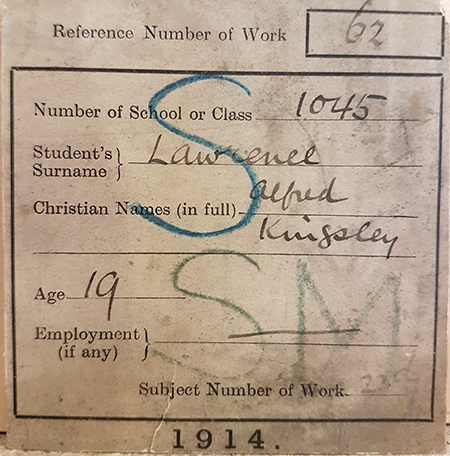 Reference Number of Work 62
Number of School or Class 1045
Student's Surname } Lawrence
Christian Names (in full) Alfred
Kingsley
Age 19
Employment (if any) }
S
SM
Subject Number of Work
1914.